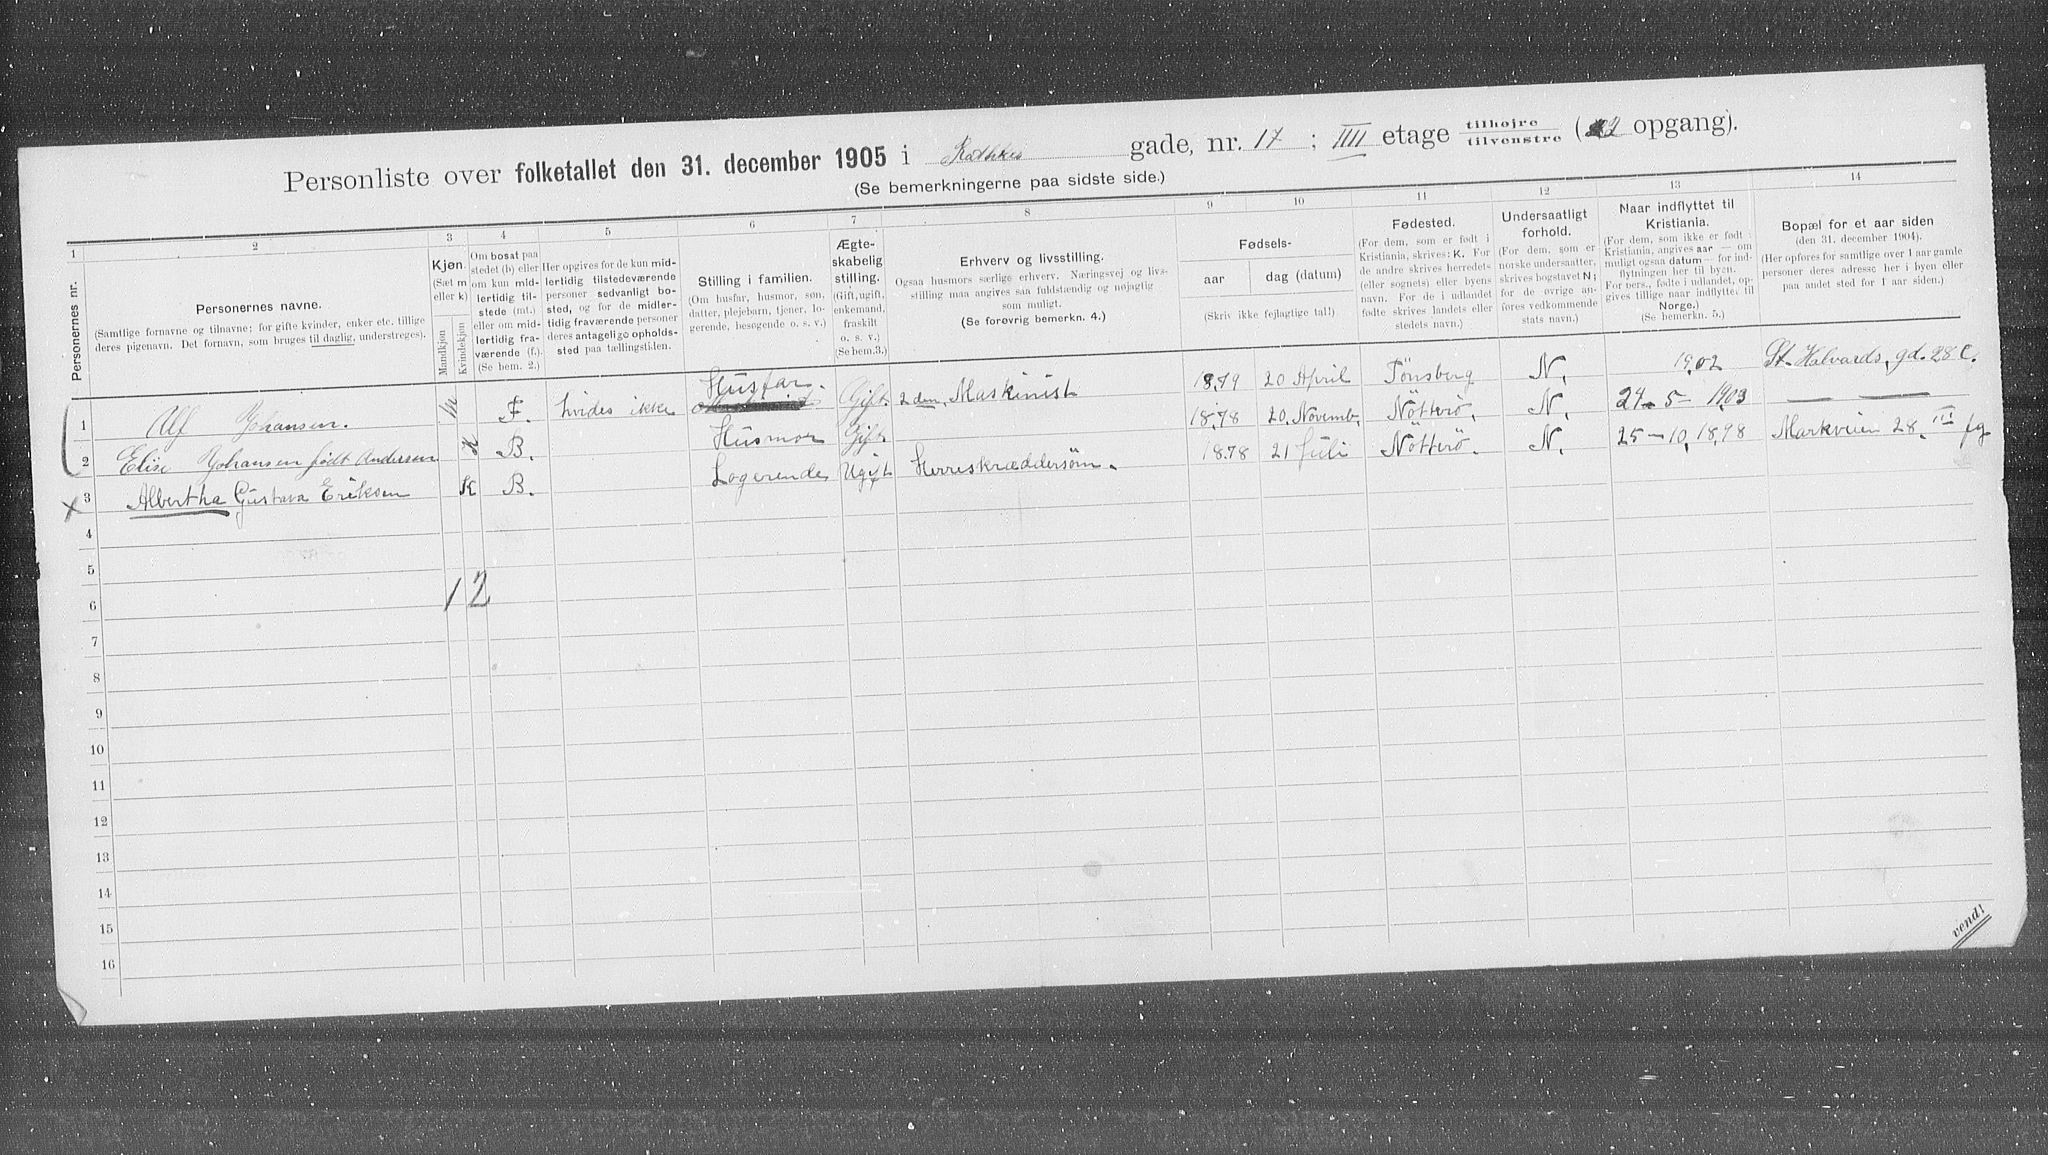 Personliste over folketallet den 31. december 1905 i Rathkes gade, nr. 17 ; IIII etage tilhøjre / tilvenstre ( 2 opgang).
(Se bemerkningerne paa sidste side.)
1 2 3 4 5 6 7 8 9 10 11 12 13 14
Personernes nr.
Personernes navne.
(Samtlige fornavne og tilnavne; for gifte kvinder, enker etc. tillige
deres pigenavn. Det fornavn, som bruges til daglig, understreges).
Kjøn.
(Sæt m
eller k)
Mandkjøn
Kvindekjøn
Om bosat paa
stedet (b) eller
om kun mid-
lertidig til-
stede (mt.)
eller om mid-
lertidig fra-
værende (f.).
(Se bem. 2.)
Her opgives for de kun mid-
lertidig tilstedeværende
personer sedvanligt bo-
sted, og for de midler-
tidig fraværende personer
deres antagelige opholds-
sted paa tællingstiden.
Stilling i familien.
(Om husfar, husmor, søn,
datter, plejebarn, tjener, lo-
gerende, besøgende o. s. v.)
Ægte-
skabelig
stilling.
(Gift, ugift,
enkemand,
fraskilt
o. s. v.)
(Se bem.3.)
Erhverv og livsstilling.
Ogsaa husmors særlige erhverv. Næringsvej og livs-
stilling maa angives saa fuldstændig og nøjagtig
som muligt.
(Se forøvrig bemerkn. 4.)
Fødsels-
aar dag (datum)
(Skriv ikke fejlagtige tal!)
Fødested.
(For dem, som er født i
Kristiania, skrives: K. For
de andre skrives herredets
(eller sognets) eller byens
navn. For de i udlandet
fødte skrives landets eller
stedets navn.)
Undersaatligt
forhold.
(For dem, som er
norske undersaatter,
skrives bogstavet N;
for de øvrige an-
føres vedkommende
stats navn.)
Naar indflyttet til
Kristiania.
(For dem, som ikke er født i
Kristiania, angives aar — om
muligt ogsaa datum — for ind-
flytningen her til byen.
For pers., fødte i udlandet, op-
gives tillige naar indflyttet. til
Norge.)
(Se bemerkn. 5.)
Bopæl for et aar siden
(den 31. december 1904).
(Her opføres for samtlige over 1 aar gamle
personer deres adresse her i byen eller
paa andet sted for 1 aar siden.)
1 Alf Johansen. m F. hvides ikke Husfar. Gift. 2 den Maskinist 1879 20 April Tönsberg N. 1902 St. Halvards. gd. 28 C.
2 Elise Johansen født Andersen K B. Husmor Gift 1878 20. Novemb. Nötterö. N. 24-5-1903 — —
x 3 Albertha Gustava Eriksen K B. Logerende Ugift Herreskræddersøm. 1878 21 Juli Nötterö. N. 25-10.1898 Markveien 28. III
4
5
6 1 2
7
8
9
10
11
12
13
14
15
16
vend!